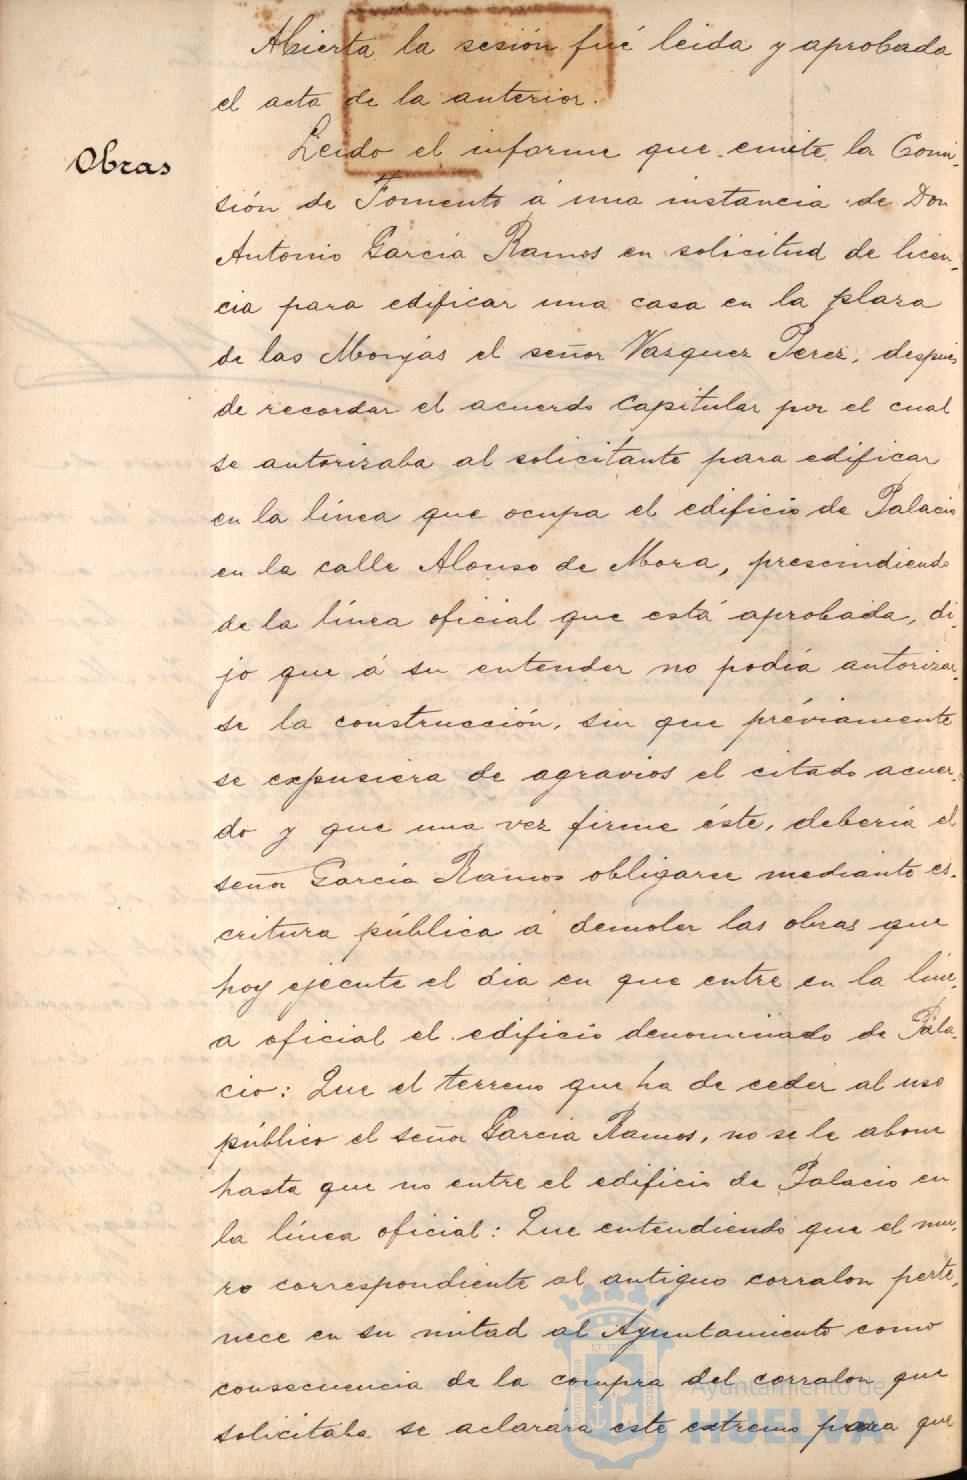 Abierta la sesión fué leida y aprobada
el acta de la anterior.
Obras
Leido el informe que emite la Comi-
sión de Fomento á una instancia de Don
Antonio Garcia Ramos en solicitud de licen-
cia para edificar una casa en la plaza
de las Monjas el señor Vazquez Perez, después
de recordar el acuerdo capitular por el cual
se autorizaba al solicitante para edificar
en la línea que ocupa el edificio de Palacio
en la calle Alonso de Mora, prescindiendo
de la línea oficial que está aprobada, di-
jo que á su entender no podia autorizar-
se la construcción, sin que préviamente
se expusiera de agravios el citado acuer-
do y que una vez firme éste, deberia el
señor Garcia Ramos obligarse mediante es-
critura pública á demoler las obras que
hoy ejecute el dia en que entre en la líne-
a oficial el edificio denominado de Pala-
cio: Que el terreno que ha de ceder al uso
público el señor Garcia Ramos, no se le abone
hasta que no entre el edificio de Palacio en
la línea oficial: Que entendiendo que el mu-
ro correspondiente al antiguo corralon perte-
nece en su mitad al Ayuntamiento como
consecuencia de la compra del corralon que
solicitaba se aclarára este extremo para que
Ayuntamiento de
HUELVA